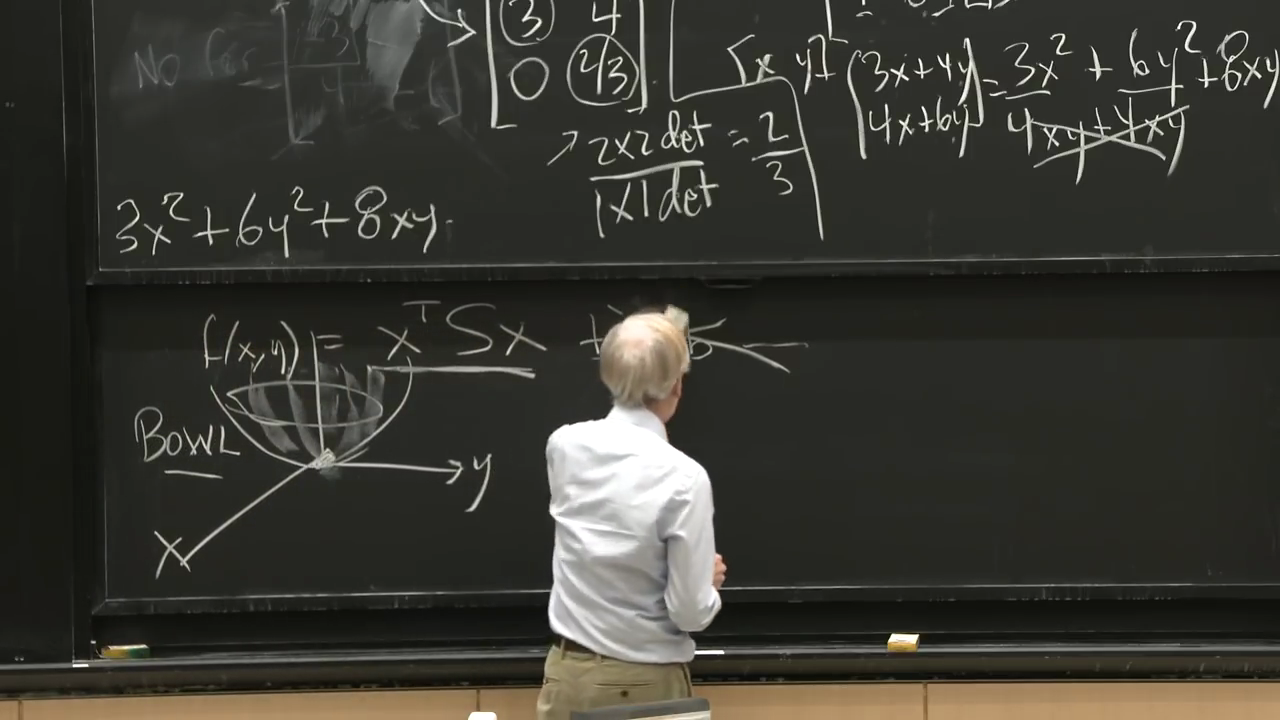 No for
-3
4
3 4
0 2/3
2x2 det / 1x1 det = 2/3
[x y] [3x+4y 4x+6y] = 3x² + 6y² + 8xy
4xy+4xy
3x²+6y²+8xy
f(x,y) = xᵀSx +
BOWL
y
x